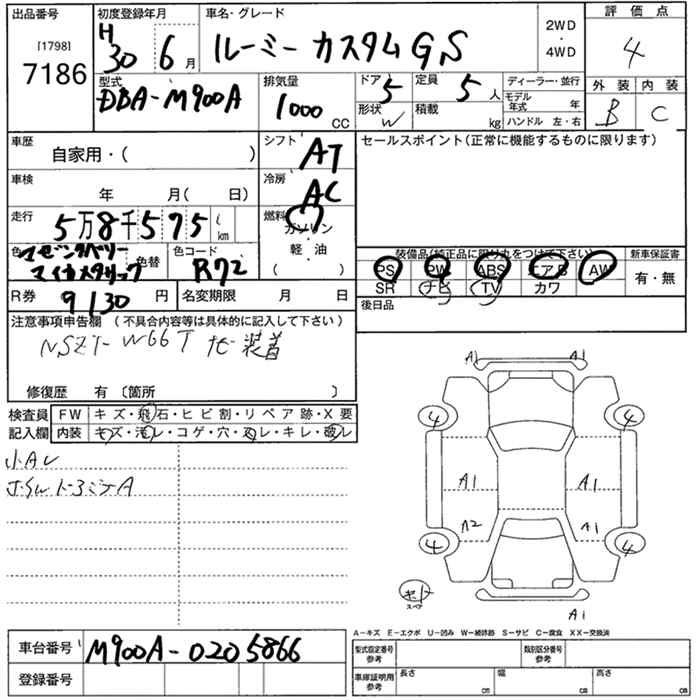 出品番号 初度登録年月 車名・グレード 評価点
[1798]
7186
H30 6月 ルーミー カスタムGS 2WD・4WD 4
型式 排気量 ドア 定員 ディーラー・並行 外装 内装
DBA-M900A 1000CC 5 5人 モデル年式 年 B C
形状 W 積載 kg ハンドル 左・右
車歴 シフト セールスポイント(正常に機能するものに限ります)
自家用・( ) AT
車検 冷房
年 月( 日) AC
走行 燃料
5万8千575km ガソリン
色 色替 色コード 軽・油 装備品(純正品に限り丸をつけて下さい) 新車保証書
マゼンタベリーマイカメタリック R72 ( ) PS PW ABS エアB AW 有・無
SR ナビ TV カワ
R券 9130円 名変期限 月 日 後日品
注意事項申告欄 (不具合内容等は具体的に記入して下さい)
NSZT-W66T 地 装着
修復歴 有〔箇所 〕
検査員記入欄 FW キズ・飛石・ヒビ割・リペア跡・X要
内装 キズ・汚レ・コゲ・穴・スレ・キレ・破レ
小AU
A1 A1
4 4
A1 A1
A2 A1
4 4
スペア
A1
A-キズ E-エクボ U-凹み W-補修跡 S-サビ C-腐食 XX-交換済
車台番号 M900A-0205866 型式指定番号 参考 類別区分番号 参考
登録番号 車庫証明用 参考 長さ cm 幅 cm 高さ cm